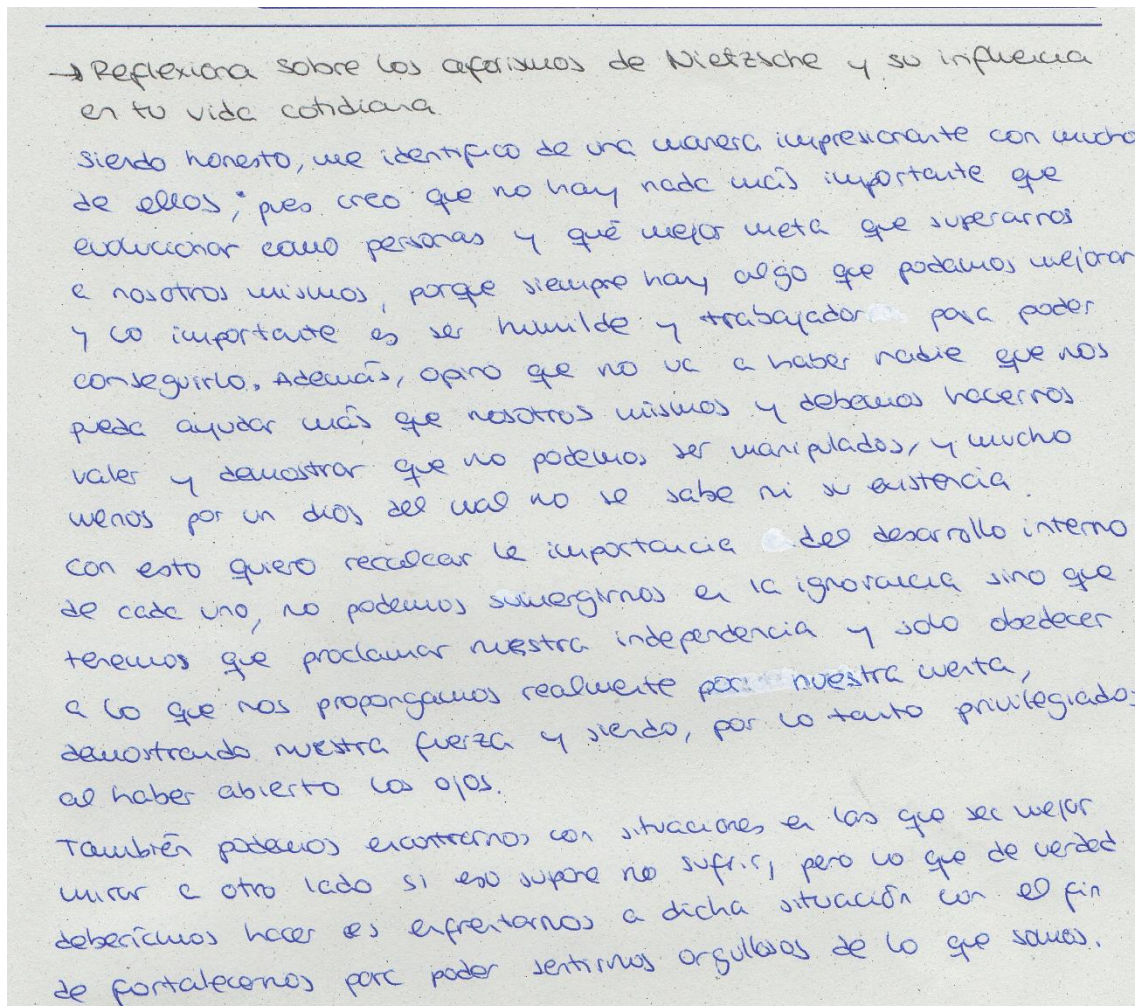 → Reflexiona sobre los aforismos de Nietzsche y su influencia
en tu vida cotidiana.
siendo honesto, me identifico de una manera impresionante con mucho
de ellos, pues creo que no hay nada más importante que
evolucionar como personas y qué mejor meta que superarnos
a nosotros mismos, porque siempre hay algo que podamos mejorar
y lo importante es ser humilde y trabajador para poder
conseguirlo. Además, opino que no va a haber nadie que nos
pueda ayudar más que nosotros mismos y debemos hacernos
valer y demostrar que no podemos ser manipulados, y mucho
menos por un dios del cual no se sabe ni su existencia.
con esto quiero recalcar la importancia del desarrollo interno
de cada uno, no podemos sumergirnos en la ignorancia sino que
tenemos que proclamar nuestra independencia y solo obedecer
a lo que nos propongamos realmente por nuestra cuenta,
demostrando nuestra fuerza y siendo, por lo tanto privilegiados
al haber abierto los ojos.
También podemos encontrarnos con situaciones en las que sea mejor
mirar a otro lado si eso supone no sufrir, pero lo que de verdad
deberíamos hacer es enfrentarnos a dicha situación con el fin
de fortalecernos para poder sentirnos orgullosos de lo que somos.